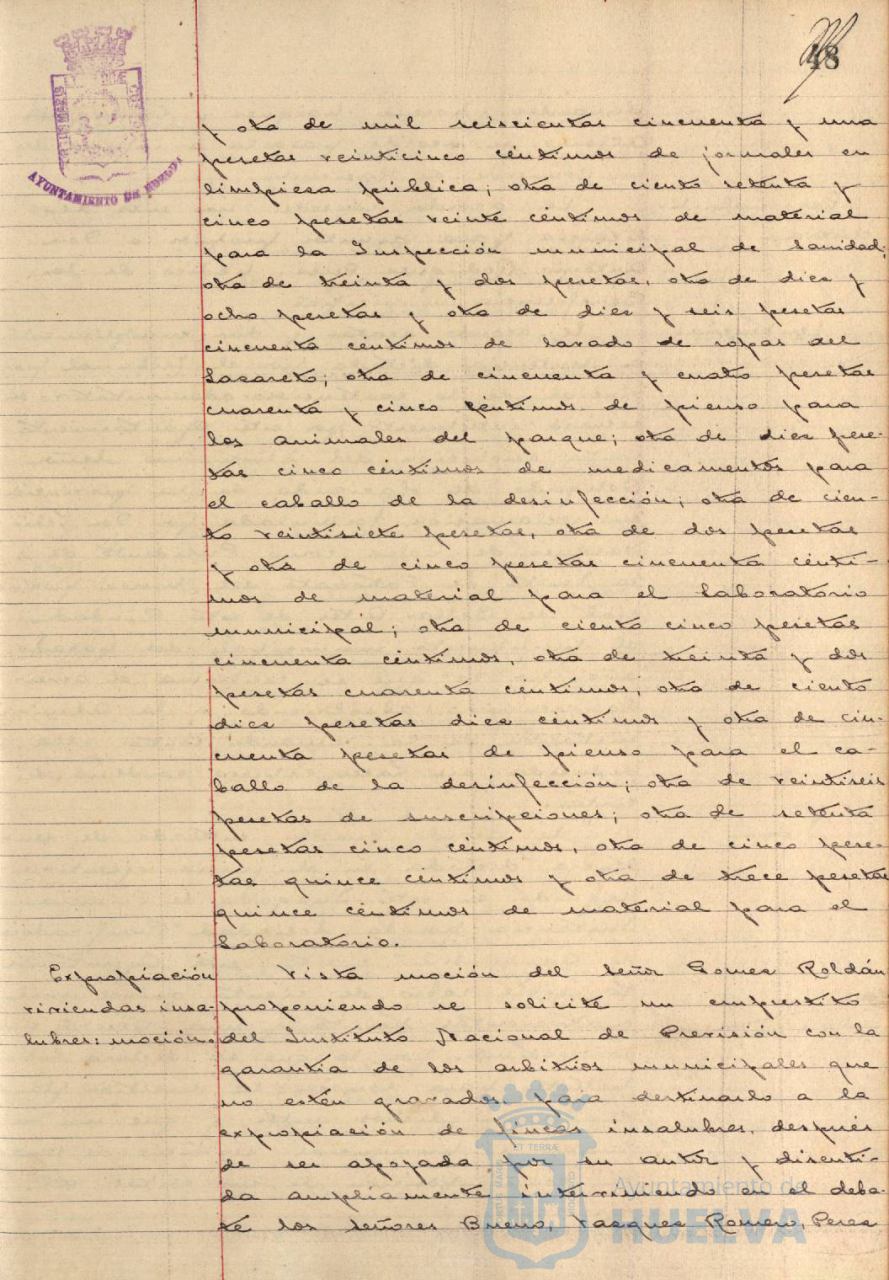 48
PORTUS MARIS CUSTODIA
AYUNTAMIENTO DE HUELVA
y otra de mil seiscientas cincuenta y una
pesetas veinticinco céntimos de jornales en
limpiesa pública; otra de ciento setenta y
cinco pesetas veinte céntimos de material
para la Inspección municipal de Sanidad;
otra de treinta y dos pesetas, otra de dies y
ocho pesetas y otra de dies y seis pesetas
cincuenta céntimos de lavado de ropas del
Lasareto; otra de cincuenta y cuatro pesetas
cuarenta y cinco céntimos de pienso para
los animales del parque; otra de dies pese-
tas cinco céntimos de medicamentos para
el caballo de la desinfección; otra de cien-
to veintisiete pesetas, otra de dos pesetas
y otra de cinco pesetas cincuenta cénti-
mos de material para el Laboratorio
municipal; otra de ciento cinco pesetas
cincuenta céntimos, otra de treinta y dos
pesetas cuarenta céntimos, otra de ciento
dies pesetas dies céntimos y otra de cin-
cuenta pesetas de pienso para el ca-
ballo de la desinfección; otra de veintiseis
pesetas de suscripciones; otra de setenta
pesetas cinco céntimos, otra de cinco pese-
tas quince céntimos y otra de trece pesetas
quince céntimos de material para el
Laboratorio.
Expropiación
viviendas insa-
lubres: moción.
Vista moción del señor Gomes Roldán
proponiendo se solicite un empréstito
del Instituto Nacional de Previsión con la
garantía de los arbitrios municipales que
no estén gravados, para destinarlo a la
expropiación de fincas insalubres, después
de ser apoyada por su autor y discuti-
da ampliamente interviniendo en el deba-
te los señores Bueno, Vasques Romero, Peres
Ayuntamiento de
HUELVA